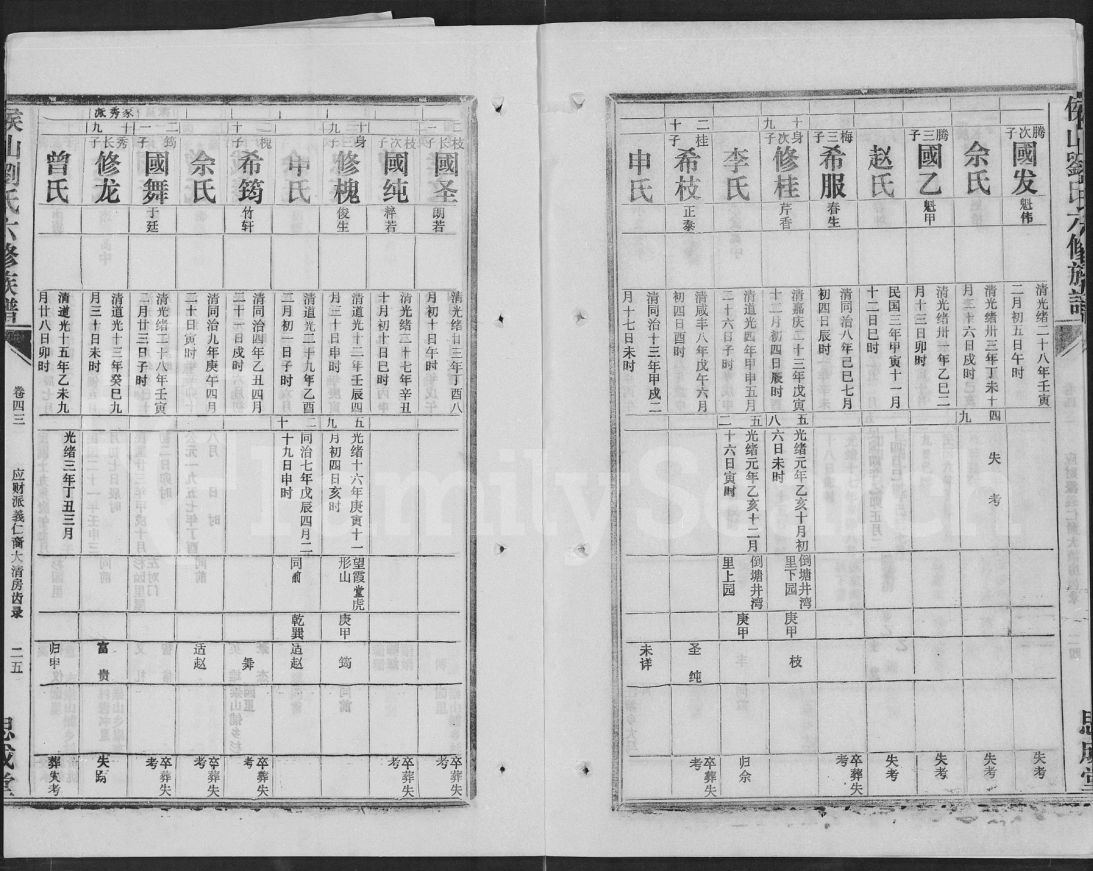 侯山劉氏六修族譜
思成堂
腾次子
國发
魁伟
清光绪二十八年壬寅
二月初五日午时
失考
余氏
清光绪卅三年丁未十
月三十六日戌时
四九
失考
失考
腾三子
國乙
魁甲
清光绪卅一年乙巳二
月十三日卯时
失考
赵氏
民国三年甲寅十一月
十二日巳时
失考
梅三子
希服
春生
清同治八年己巳七月
初四日辰时
卒葬失考
十九
身次子
修桂
芹香
清嘉庆二十三年戊寅
十二月初四日辰时
五八
光绪元年乙亥十月初
六日未时
倒塘井湾
里下园
庚甲
枝
李氏
清道光四年甲申五月
二十六日子时
五二
光绪元年乙亥十二月
十六日寅时
倒塘井湾
里上园
庚甲
归余
二十
桂子
希枝
正泰
清咸丰八年戊午六月
初四日酉时
圣纯
卒葬失考
申氏
清同治十三年甲戌二
月十七日未时
未详
二一
枝长子
國圣
朗若
清光绪廿三年丁酉八
月初十日午时
卒葬失考
枝次子
國纯
粹若
清光绪二十七年辛丑
十月初十日巳时
卒葬失考
十九
三子
修槐
俊生
清道光十二年壬辰四
月三十日申时
五九
光绪十六年庚寅十一
月初四日亥时
望霞堂虎
形山
庚甲
筠
申氏
清道光二十九年乙酉
二月初一日子时
二十
同治七年戊辰四月二
十九日申时
同前
乾巽
适赵
二十
槐子
希筠
竹轩
清同治四年乙丑四月
二十一日戌时
舞
卒葬失考
余氏
清同治九年庚午四月
二十日寅时
适赵
卒葬失考
二一
筠子
國舞
于廷
清光绪二十八年壬寅
二月廿三日子时
卒葬失考
家秀派
十九
秀长子
修龙
清道光十三年癸巳九
月三十日未时
富贵
失考
曾氏
清道光十五年乙未九
月廿八日卯时
光绪三年丁丑三月
归申
葬失考
侯山劉氏六修族譜
卷四三
应财派義仁裔大清房齿录
二五
思成堂
FamilySearch